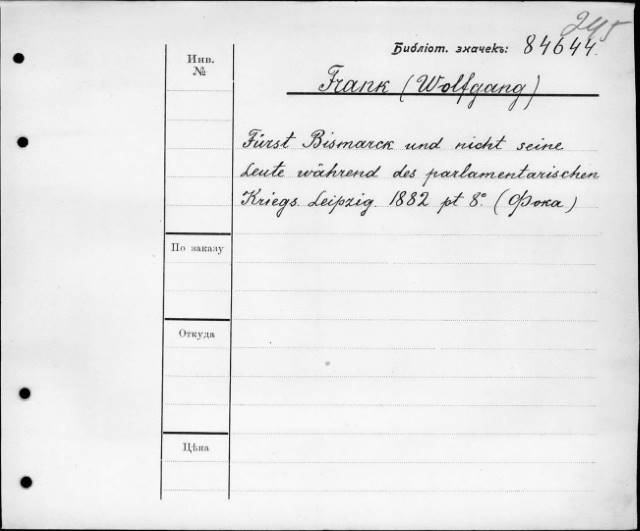 245
Библіот. значекъ: 84644.
Инв.
№
Frank (Wolfgang)
Fürst Bismarck und nicht seine
Leute während des parlamentarischen
Kriegs. Leipzig. 1882 pt 8° (Фока)
По заказу
Откуда
Цѣна